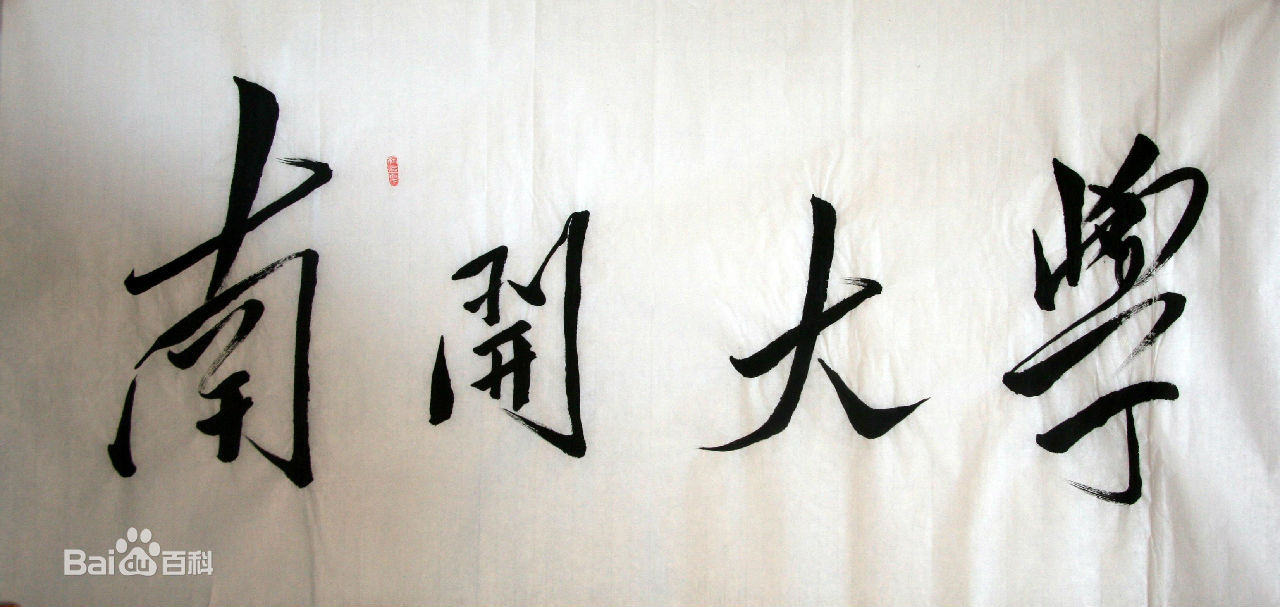 南開大學
Bai du 百科